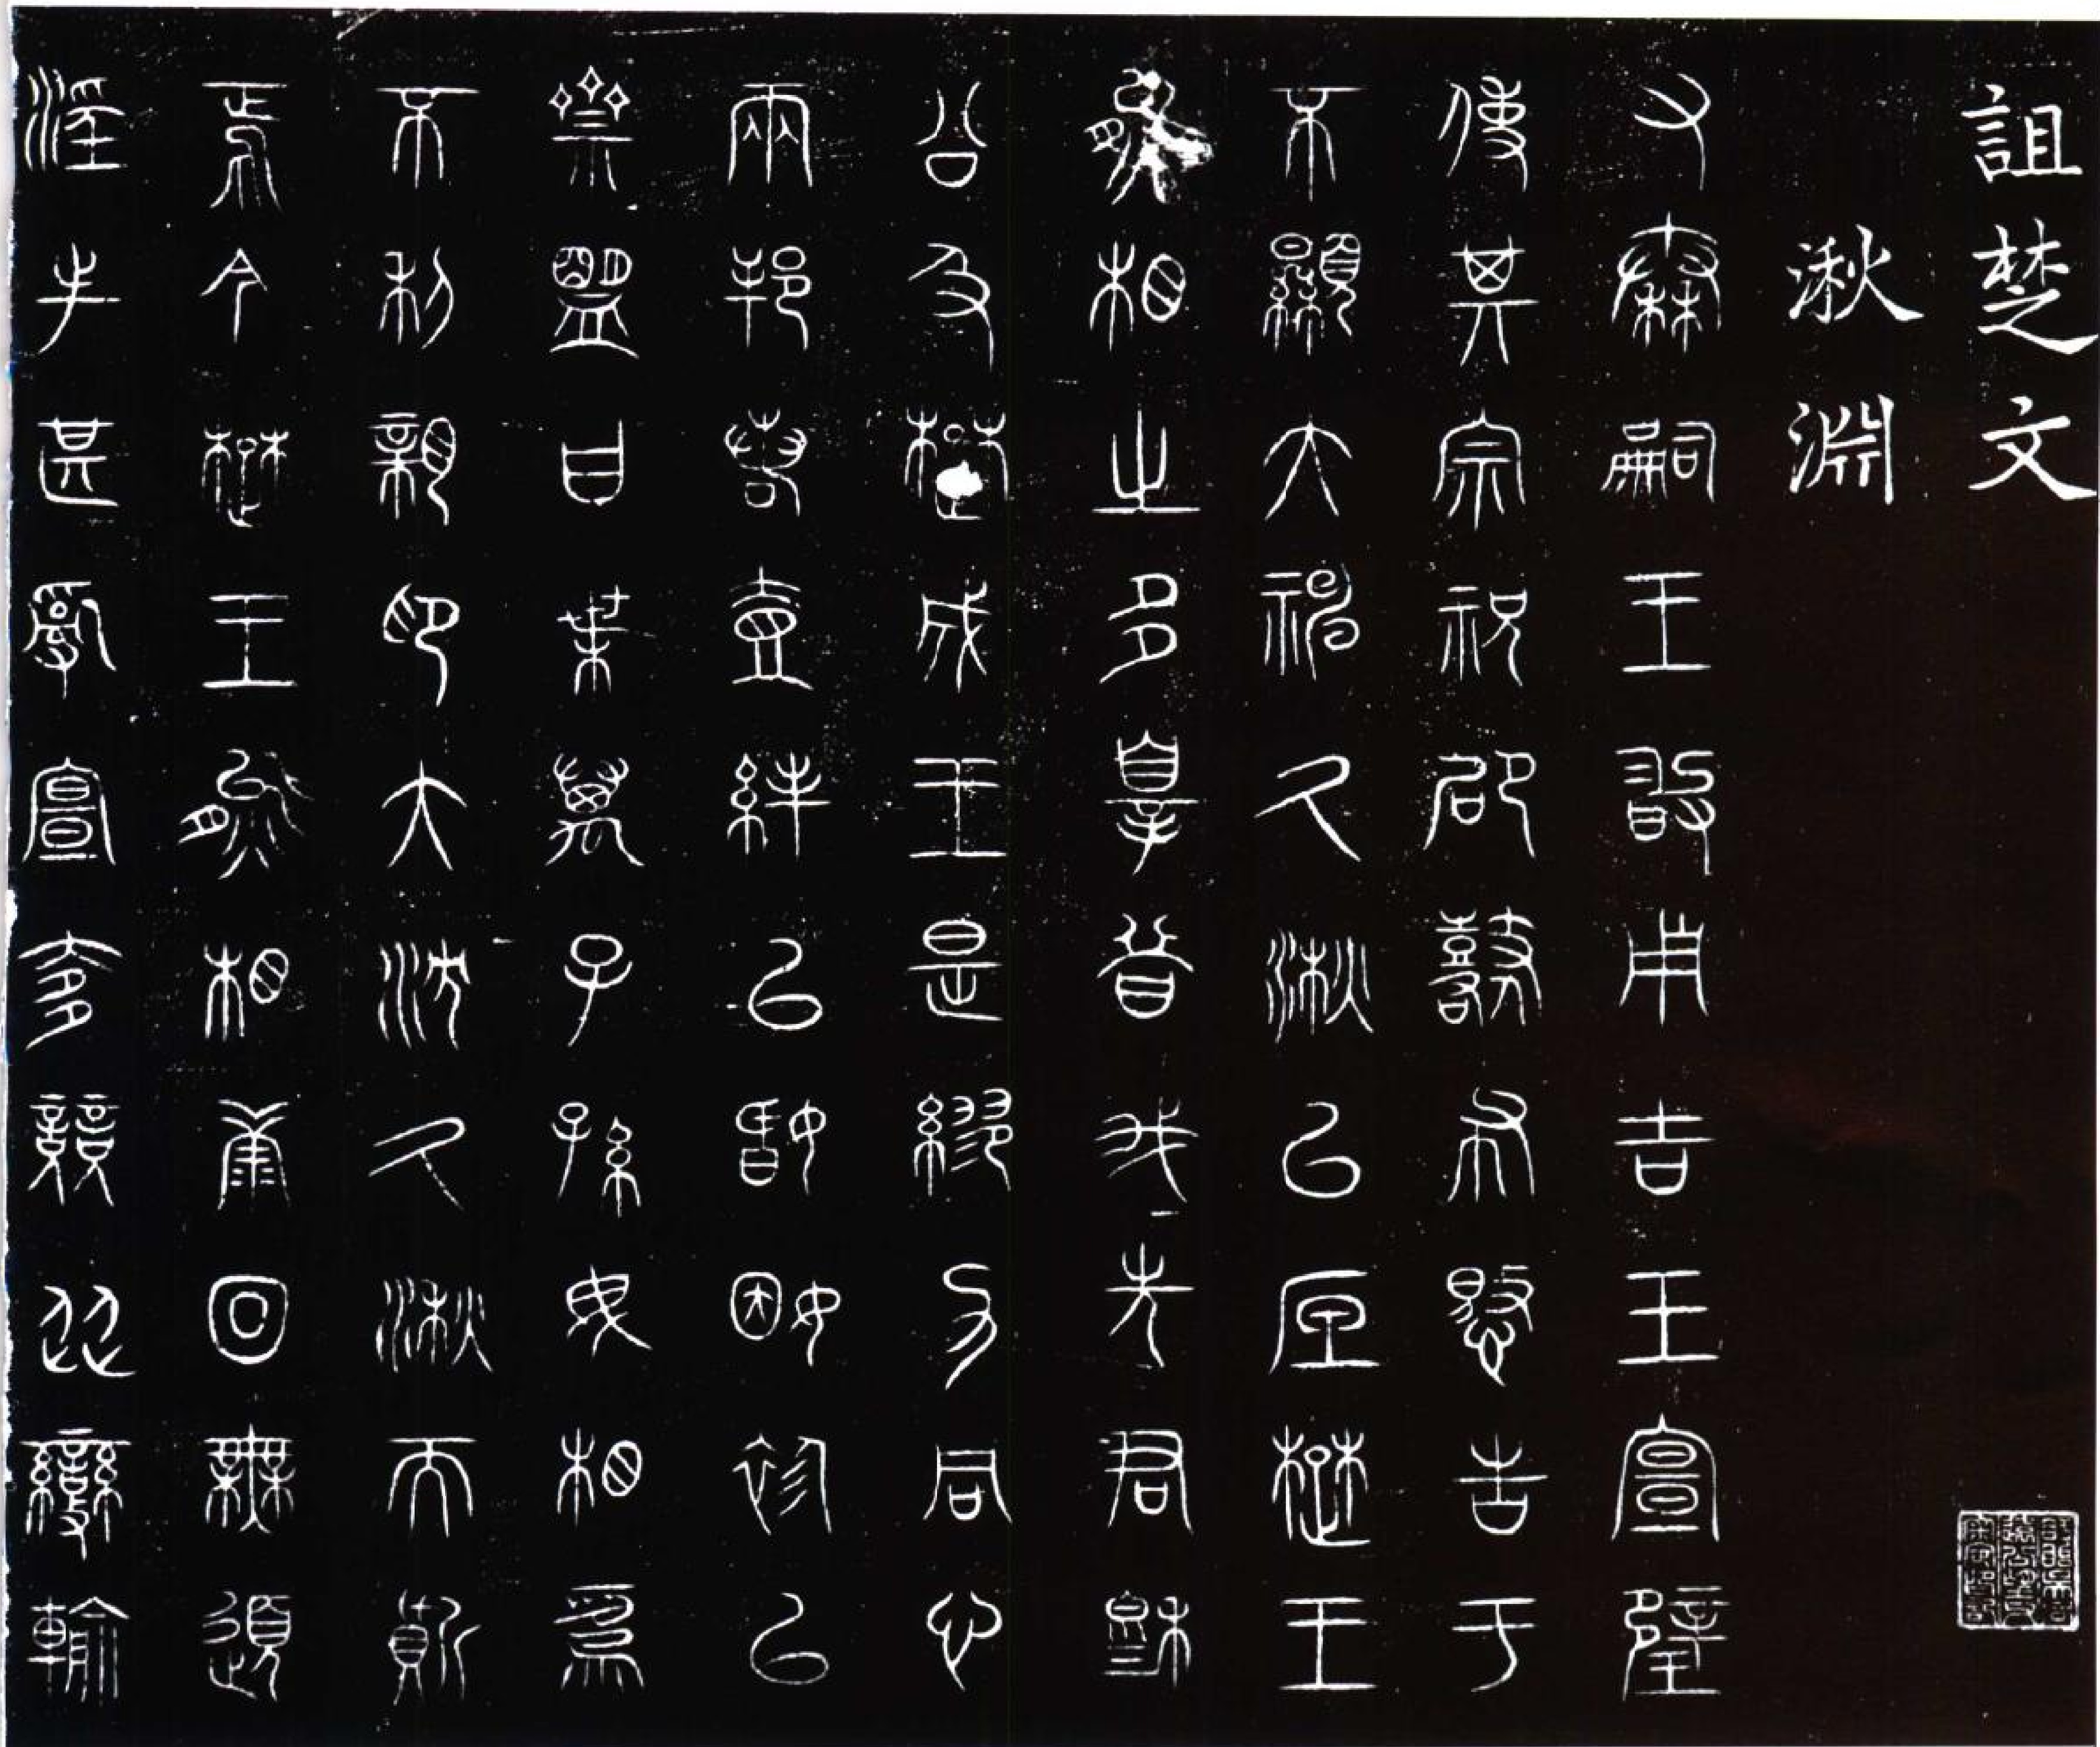 詛楚文
湫淵
又秦嗣王敢用吉玉宣璧
使其宗祝邵鼛布憝告于
不顯大神久湫以厎楚王
熊相之多辠昔我先君穆
公及楚成王是繆力同心
兩邦若壹絆以婚姻袗以
齋盟曰枼萬子孫毋相為
不利親卬大沈久湫而質
焉今楚王熊相康回無道
淫失甚亂宣奓競從變輸